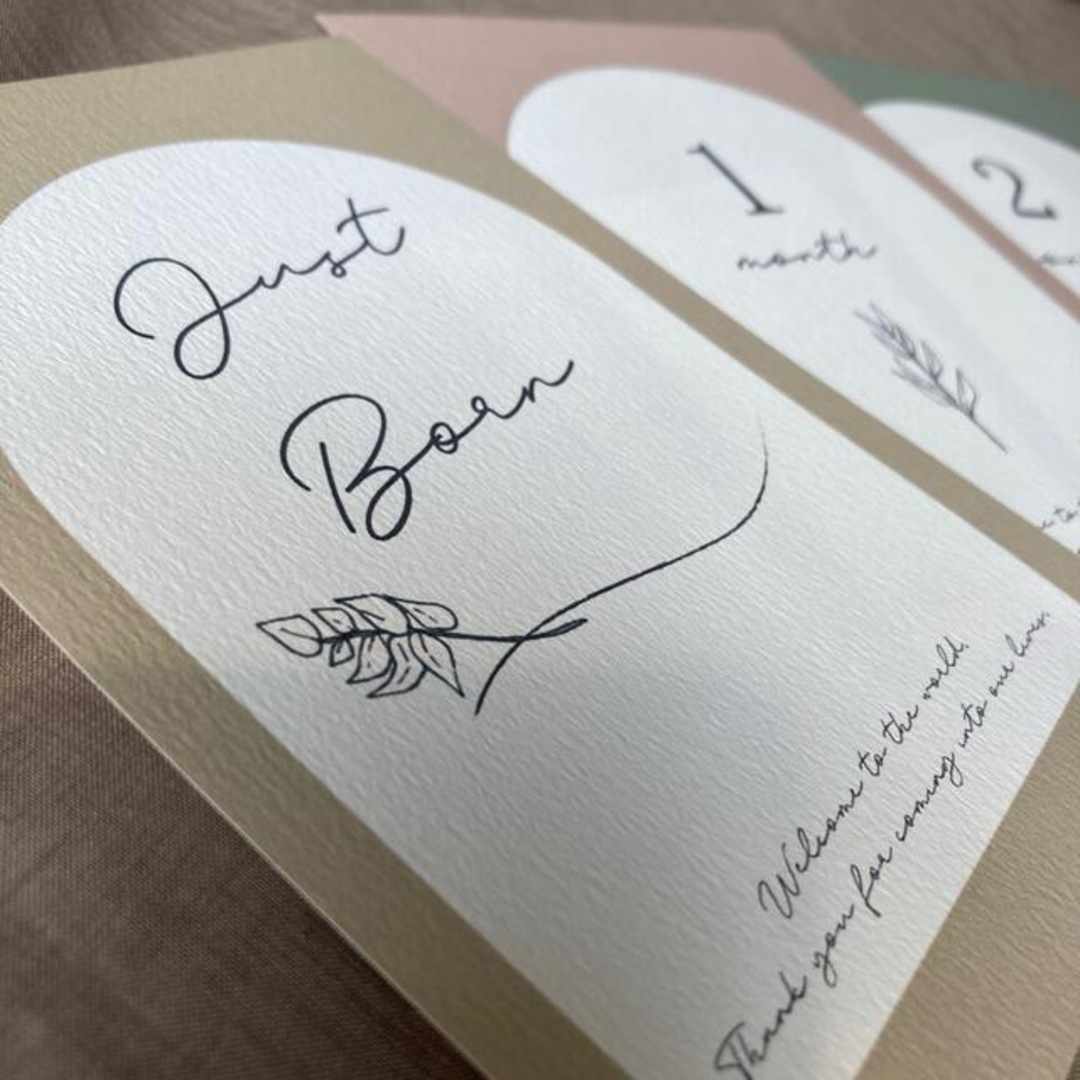 Just
Born
Welcome to the world.
Thank you for coming into our lives.
1
month
2